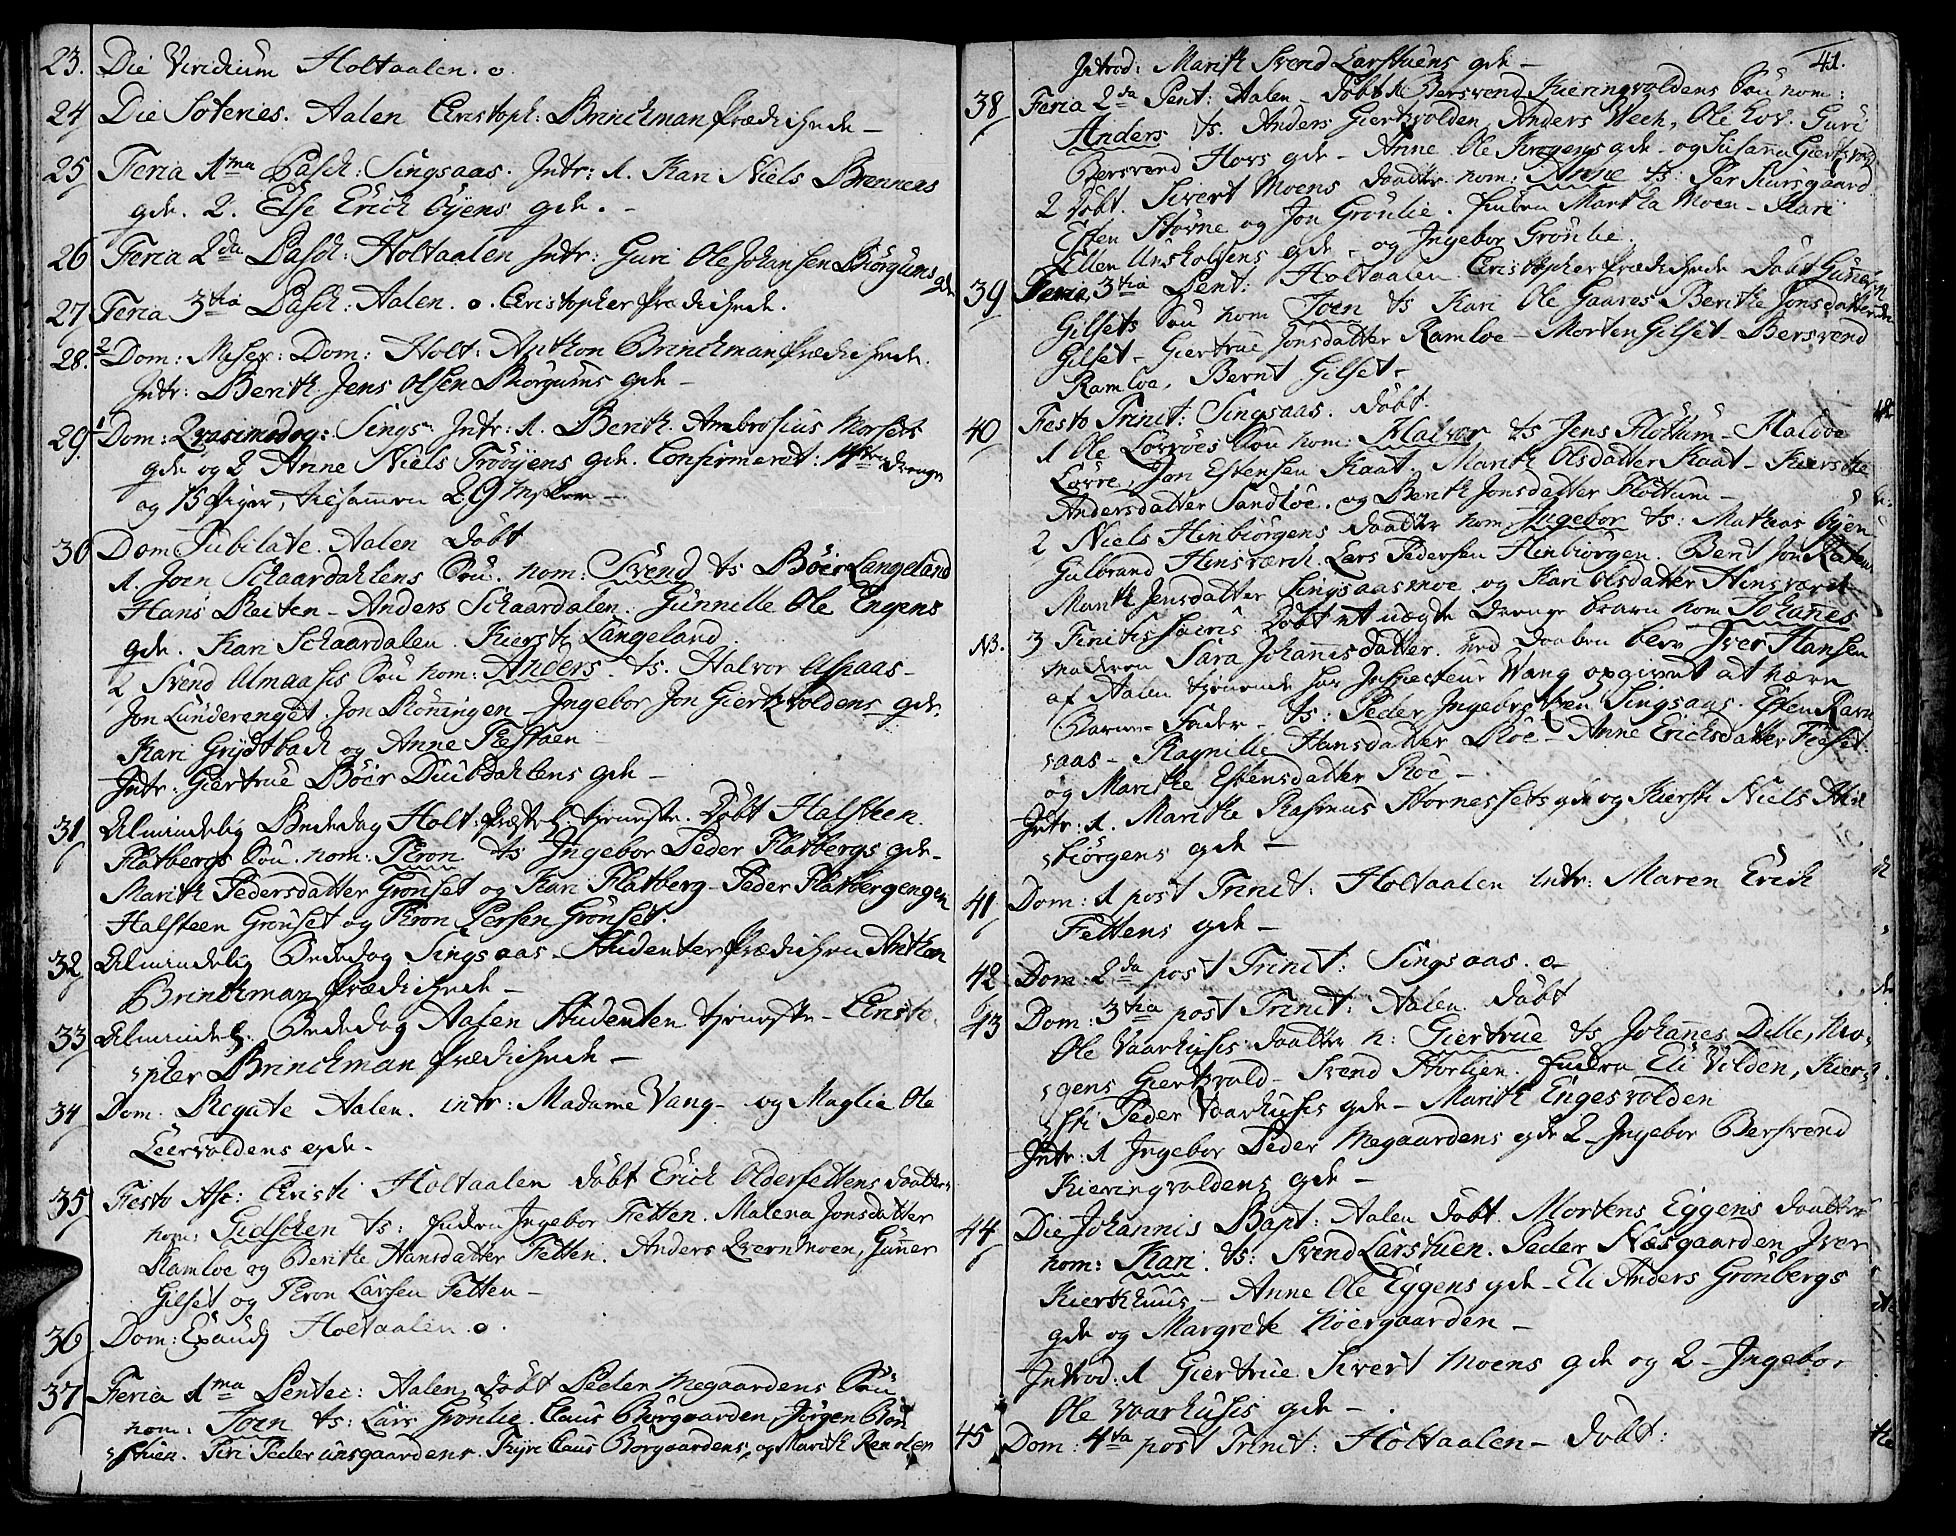 23. Die Viridium Holtaalen. o.
24 Die Soteries. Aalen Christoph: Brinckman prædichede –
25 Feria 1ma Pasch: Singsaas. Intr: 1. Kari Niels Brennens
gde. 2. Else Erich Øyens gde. –
26 Feria 2da Pasch: Holtaalen Intr: Guri Ole Johansen Biörgums gde
27 Feria 3tia Pasch: Aalen. o. Christopher prædichede.
28. 2 Dom: Miser: Dom: Holt: Anthon Brinckman prædichede.
Intr: Berith Jens Olsen Börgums gde –
29. 1 Dom: Qvasimodog: Sings. Intr: 1. Berith Ambrosius Horsets
gde og 2 Anne Niels Trööyens gde. Confirmeret: 14ten drenge
og 15 Piger, tilsamen 29
30 Dom Jubilate. Aalen döbt
1. Joen Schaardahlens Sön. nom: Svend ts Böer Langeland
Hans Reiten – Anders Schaardalen. Gunnille Ole Engens
gde. Kari Schaardalen. Kiersti Langeland.
2 Svend Almaasis Sön nom: Anders. ts. Halvor Aspaas –
Jon Lunderenget Jon Rönningen – Ingebor Jon Giertvoldens gde.
Kari Grydtbach og Anne Flesaen –
Intr: Giertrue Böer Duibdahlens gde –
31 Almindelig Bededag Holt: Præstel: tieneste. Döbt Halsteen
Flatbergs Sön. nom. Peron ts Ingebor Peder Flatbergs gde –
Marith Pedersdatter Grönset og Kari Flatberg – Peder Flatbergengen
Halsteen Grönset og Peron Persen Grönset.
32 Almindelig Bededag Singsaas – Studenter prædichen Anthon
Brinckman prædichede –
33 Almindel: Bededag Aalen Studenten tieneste – Christo-
pher Brinckman prædichede –
34 Dom: Rogate Aalen. intr: Madame Vang – og Maglie Ole
Leervoldens gde –
35 Festo Asc: Christi Holtaalen döbt Erich Olderfettens daatter
nom: Gidschen ts: Ingebor Fetten. Malena Jonsdatter
Ramloe og Berithe Hansdatter Fetten. Anders Evernmoen, Guner
Gilset og Peron Larsen Fetten –
36 Dom: Exaudj Holtaalen. o.
37 Feria 1ma Pentec: Aalen, döbt Peder Megaardens Sön
nom: Joen ts: Lars Grönlie. Claus Borgaarden, Jörgen Bor
stuen. Siri Peder unsgaardens. Claus Borgaardens, og Marith Renolen
41.
Introd: Marith Svend Larstuens gde –
38 Feria 2da Pent: Aalen – döbt 1 Bersvend Kieringvoldens Sön nom:
Anders ts. Anders Giertvolden, Anders Wech, Ole Hov. Guri
Bersvend Hovs gde – Anne Ole Krogens gde – og Susana Giertvold
2 döbt. Sivert Moens daatter nom: Anne ts: Per Kursgaard
Esten Störne og Jon Grönlie. Martha Moen – Kari
Ellen Unsholsens gde – og Ingebor Grönlie.
39 Feria 3tia Pent: Holtaalen. Christopher prædichede döbt Guner
Gilsets Sön nom Joen ts Kari Ole Gaares Berithe Jonsdatter
Gilset – Giertrue Jonsdatter Ramloe – Morten Gilset – Bersvend
Ramloe, Bernt Gilset –
40 Festo Trinit: Singsaas. döbt.
1 Ole Lövröes Sön nom: Halvor ts Jens Flöttum – Haldoe
Lövre, Jon Estensen Kaat. Marith Olsdatter Kaat – Kiersthe
Andersdatter Sandloe. og Berith Jonsdatter Flöttum –
2 Niels Hinbiörgens daatter nom Ingebor ts: Mathias Øyen
Gulbrand Hinsværch. Lars Pedersen Hinbiörgen. Berit Jon
Marith Jensdatter Singsaasmoe og Kari Olsdatter Hinsværch –
NB. 3 Finitis Sacris Döbt et uægte Drenge barn nom Johanes
moderen Sara Johanisdatter. ved daaben blev Iver Hansen
af Aalen tienende hos Inspecteur Wang opgivet at være
Barne-Fader – ts: Peder Ingebrigtsen Singsaas. Esten Ravn
saas – Ragnille Hansdatter Roe – Anne Erichsdatter Fiaset
og Marithe Estensdatter Roe –
Intr: 1. Marithe Rasmus Störnessets gde og Kiersti Niels Hin
biörgens gde –
41 Dom: 1 post Trinit: Holtaalen intr: Maren Erich
Fettens gde –
42 Dom: 2da post Trinit: Singsaas. o –
43 Dom: 3tia post Trinit: Aalen döbt
Ole Vaarhusis daatter n: Giertrue ts Johannes Dille, Mo-
gens Giertvold – Svend Storlien. Eli Volden, Kier-
sti Peder Vaarhusis gde – Marith Engesvolden
Intr: 1 Ingebor Peder Megaardens gde 2 – Ingebor Bersvend
Kieringvoldens gde –
44 Die Johannis Bapt: Aalen döbt. Mortens Eggens daatter
nom: Kari. ts: Svend Larstuen. Peder Næsgaarden Iver
Kierkhuus – Anne Ole Eggens gde – Eli Anders Grönbergs
gde og Margrete Höergaarden –
Introd: 1 Giertrue Sivert Moens gde og 2 – Ingebor
Ole Vaarhusis gde –
45 Dom: 4ta post Trinit: Holtaalen – döbt: